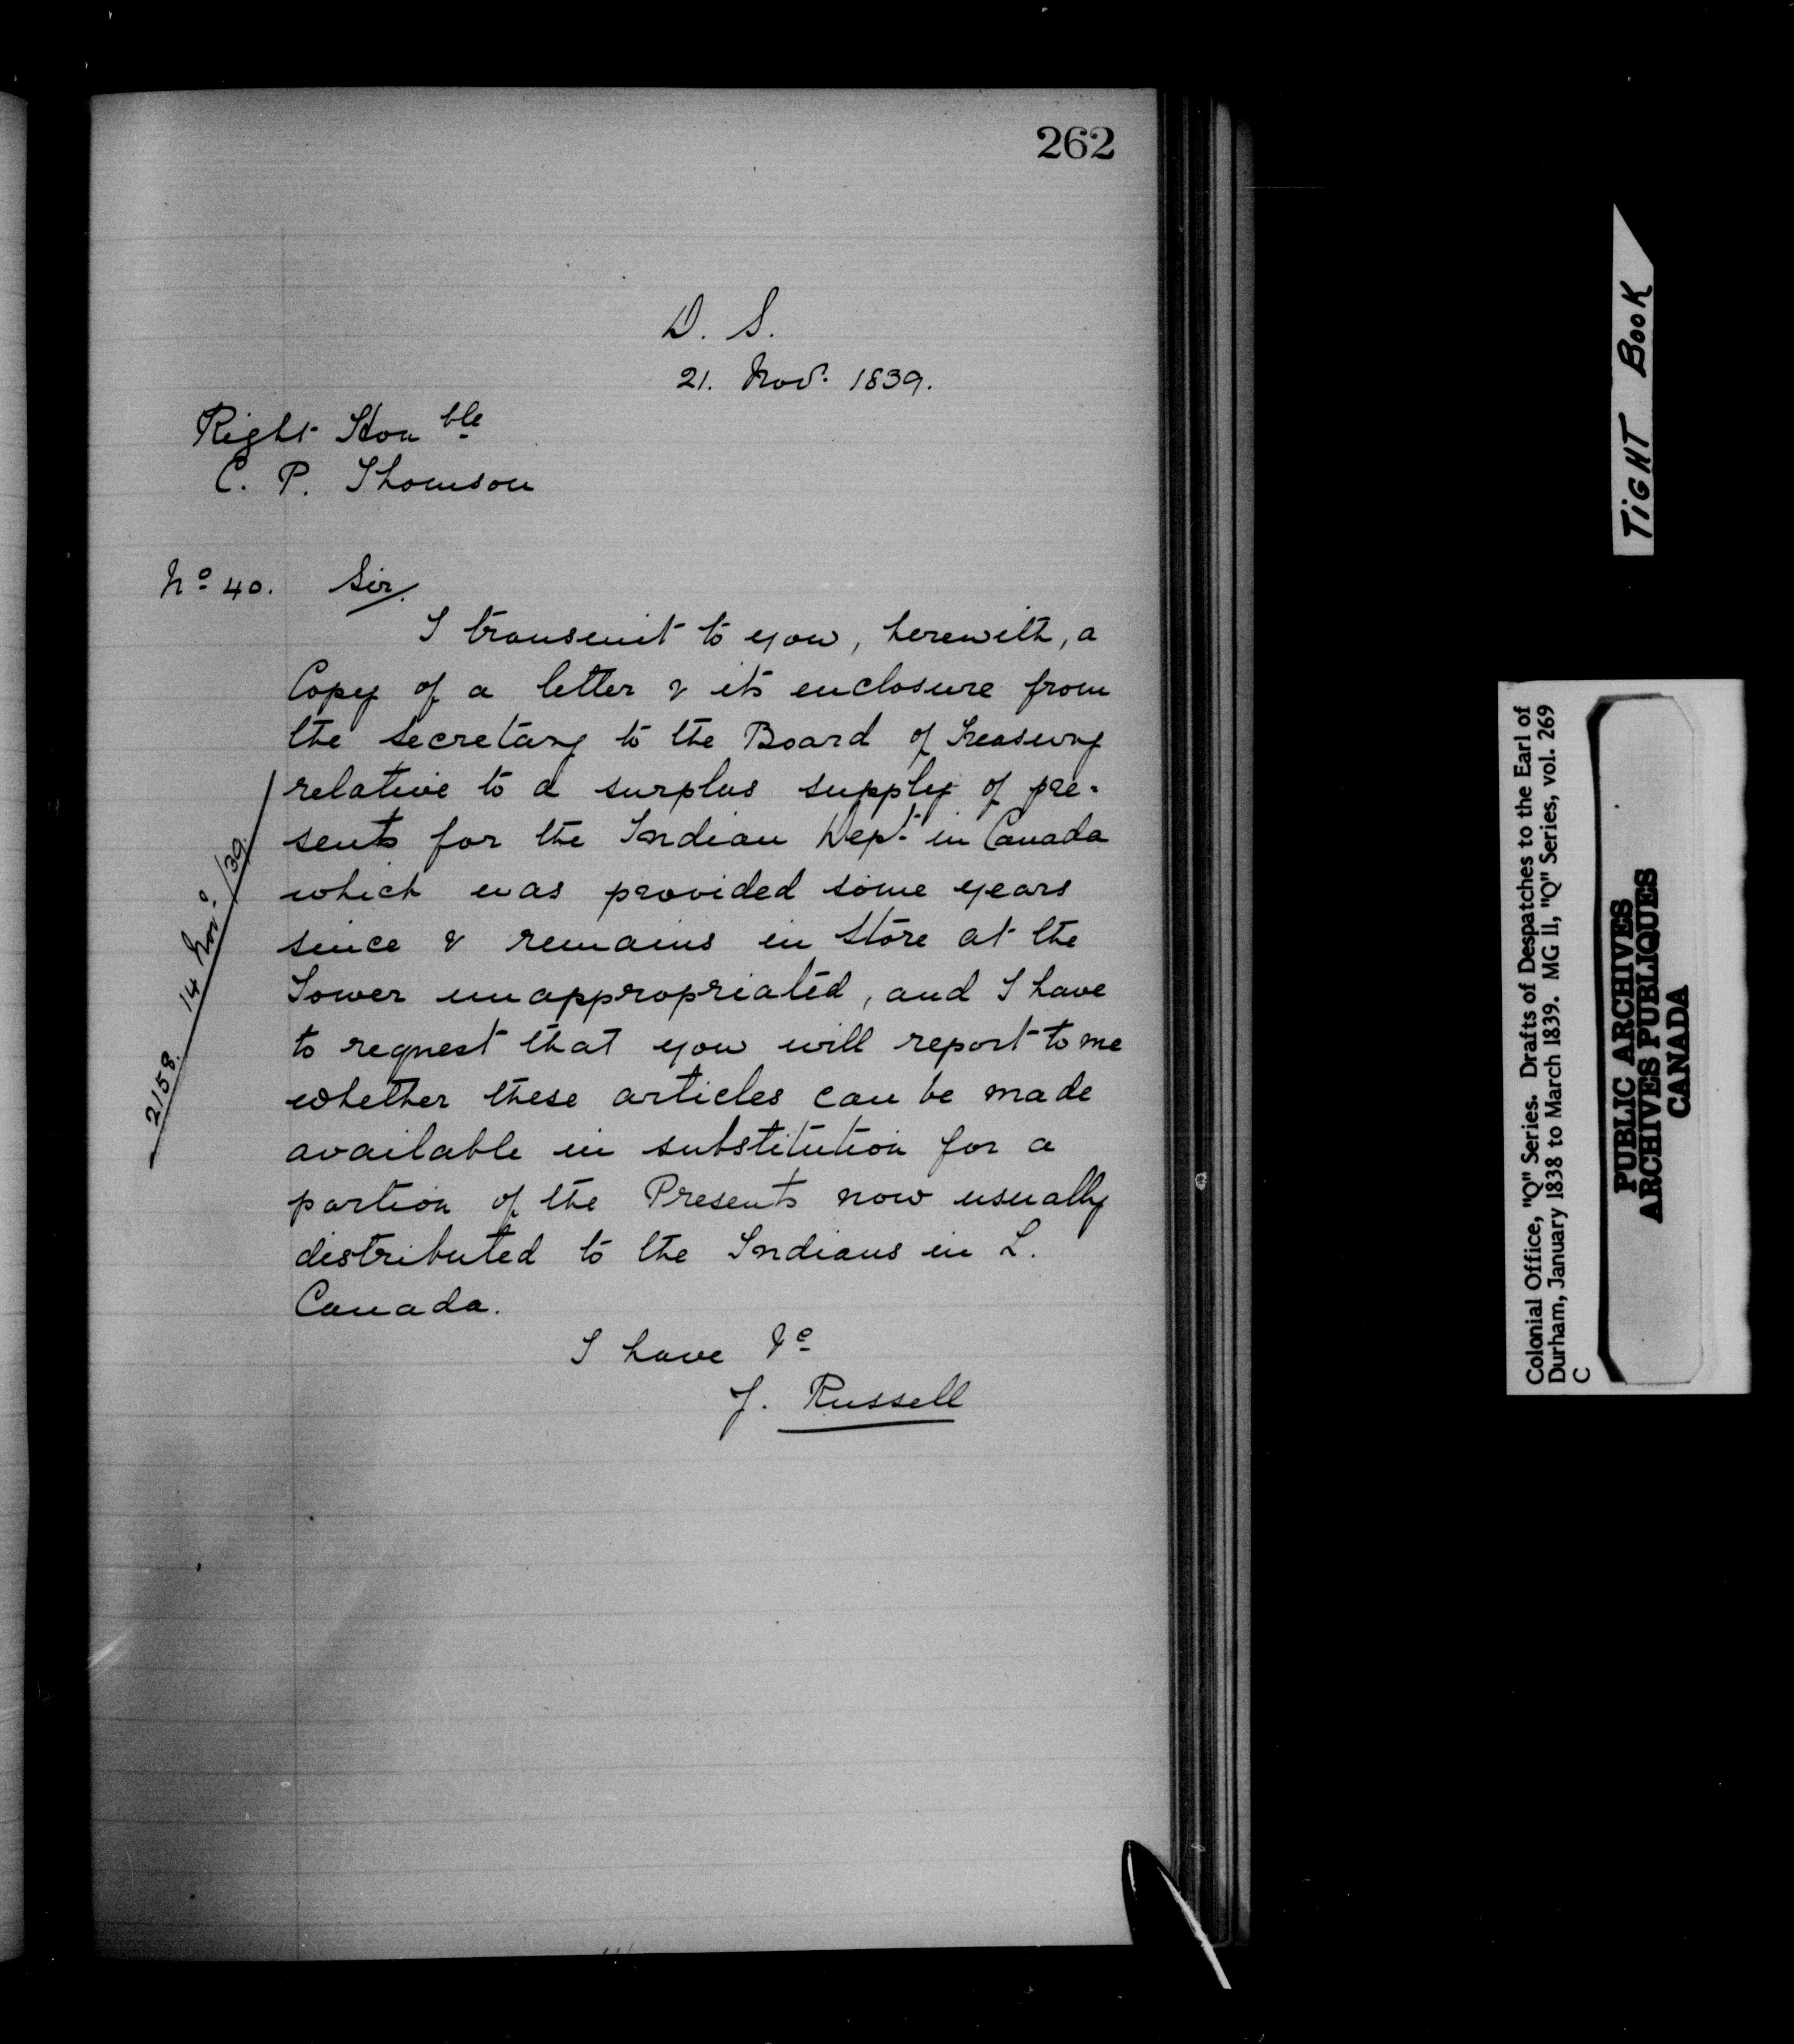 262
D. S.
21. Nov. 1839.
Right Hon ble
C. P. Thomson
No 40. Sir,
I transmit to you, herewith, a
Copy of a letter & its enclosure from
the secretary to the Board of Treasury
relative to a surplus supply of pre-
sents for the Indian Dept. in Canada
which was provided some years
since & remains in store at the
Tower unappropriated, and I have
to request that you will report to me
whether these articles can be made
available in substitution for a
portion of the Presents now usually
distributed to the Indians in L.
Canada.
I have &c
J. Russell
2158. 14 Nov. /39.
TIGHT BOOK
Colonial Office, "Q" Series. Drafts of Despatches to the Earl of
Durham, January 1838 to March 1839. MG 11, "Q" Series, vol. 269
C
PUBLIC ARCHIVES
ARCHIVES PUBLIQUES
CANADA